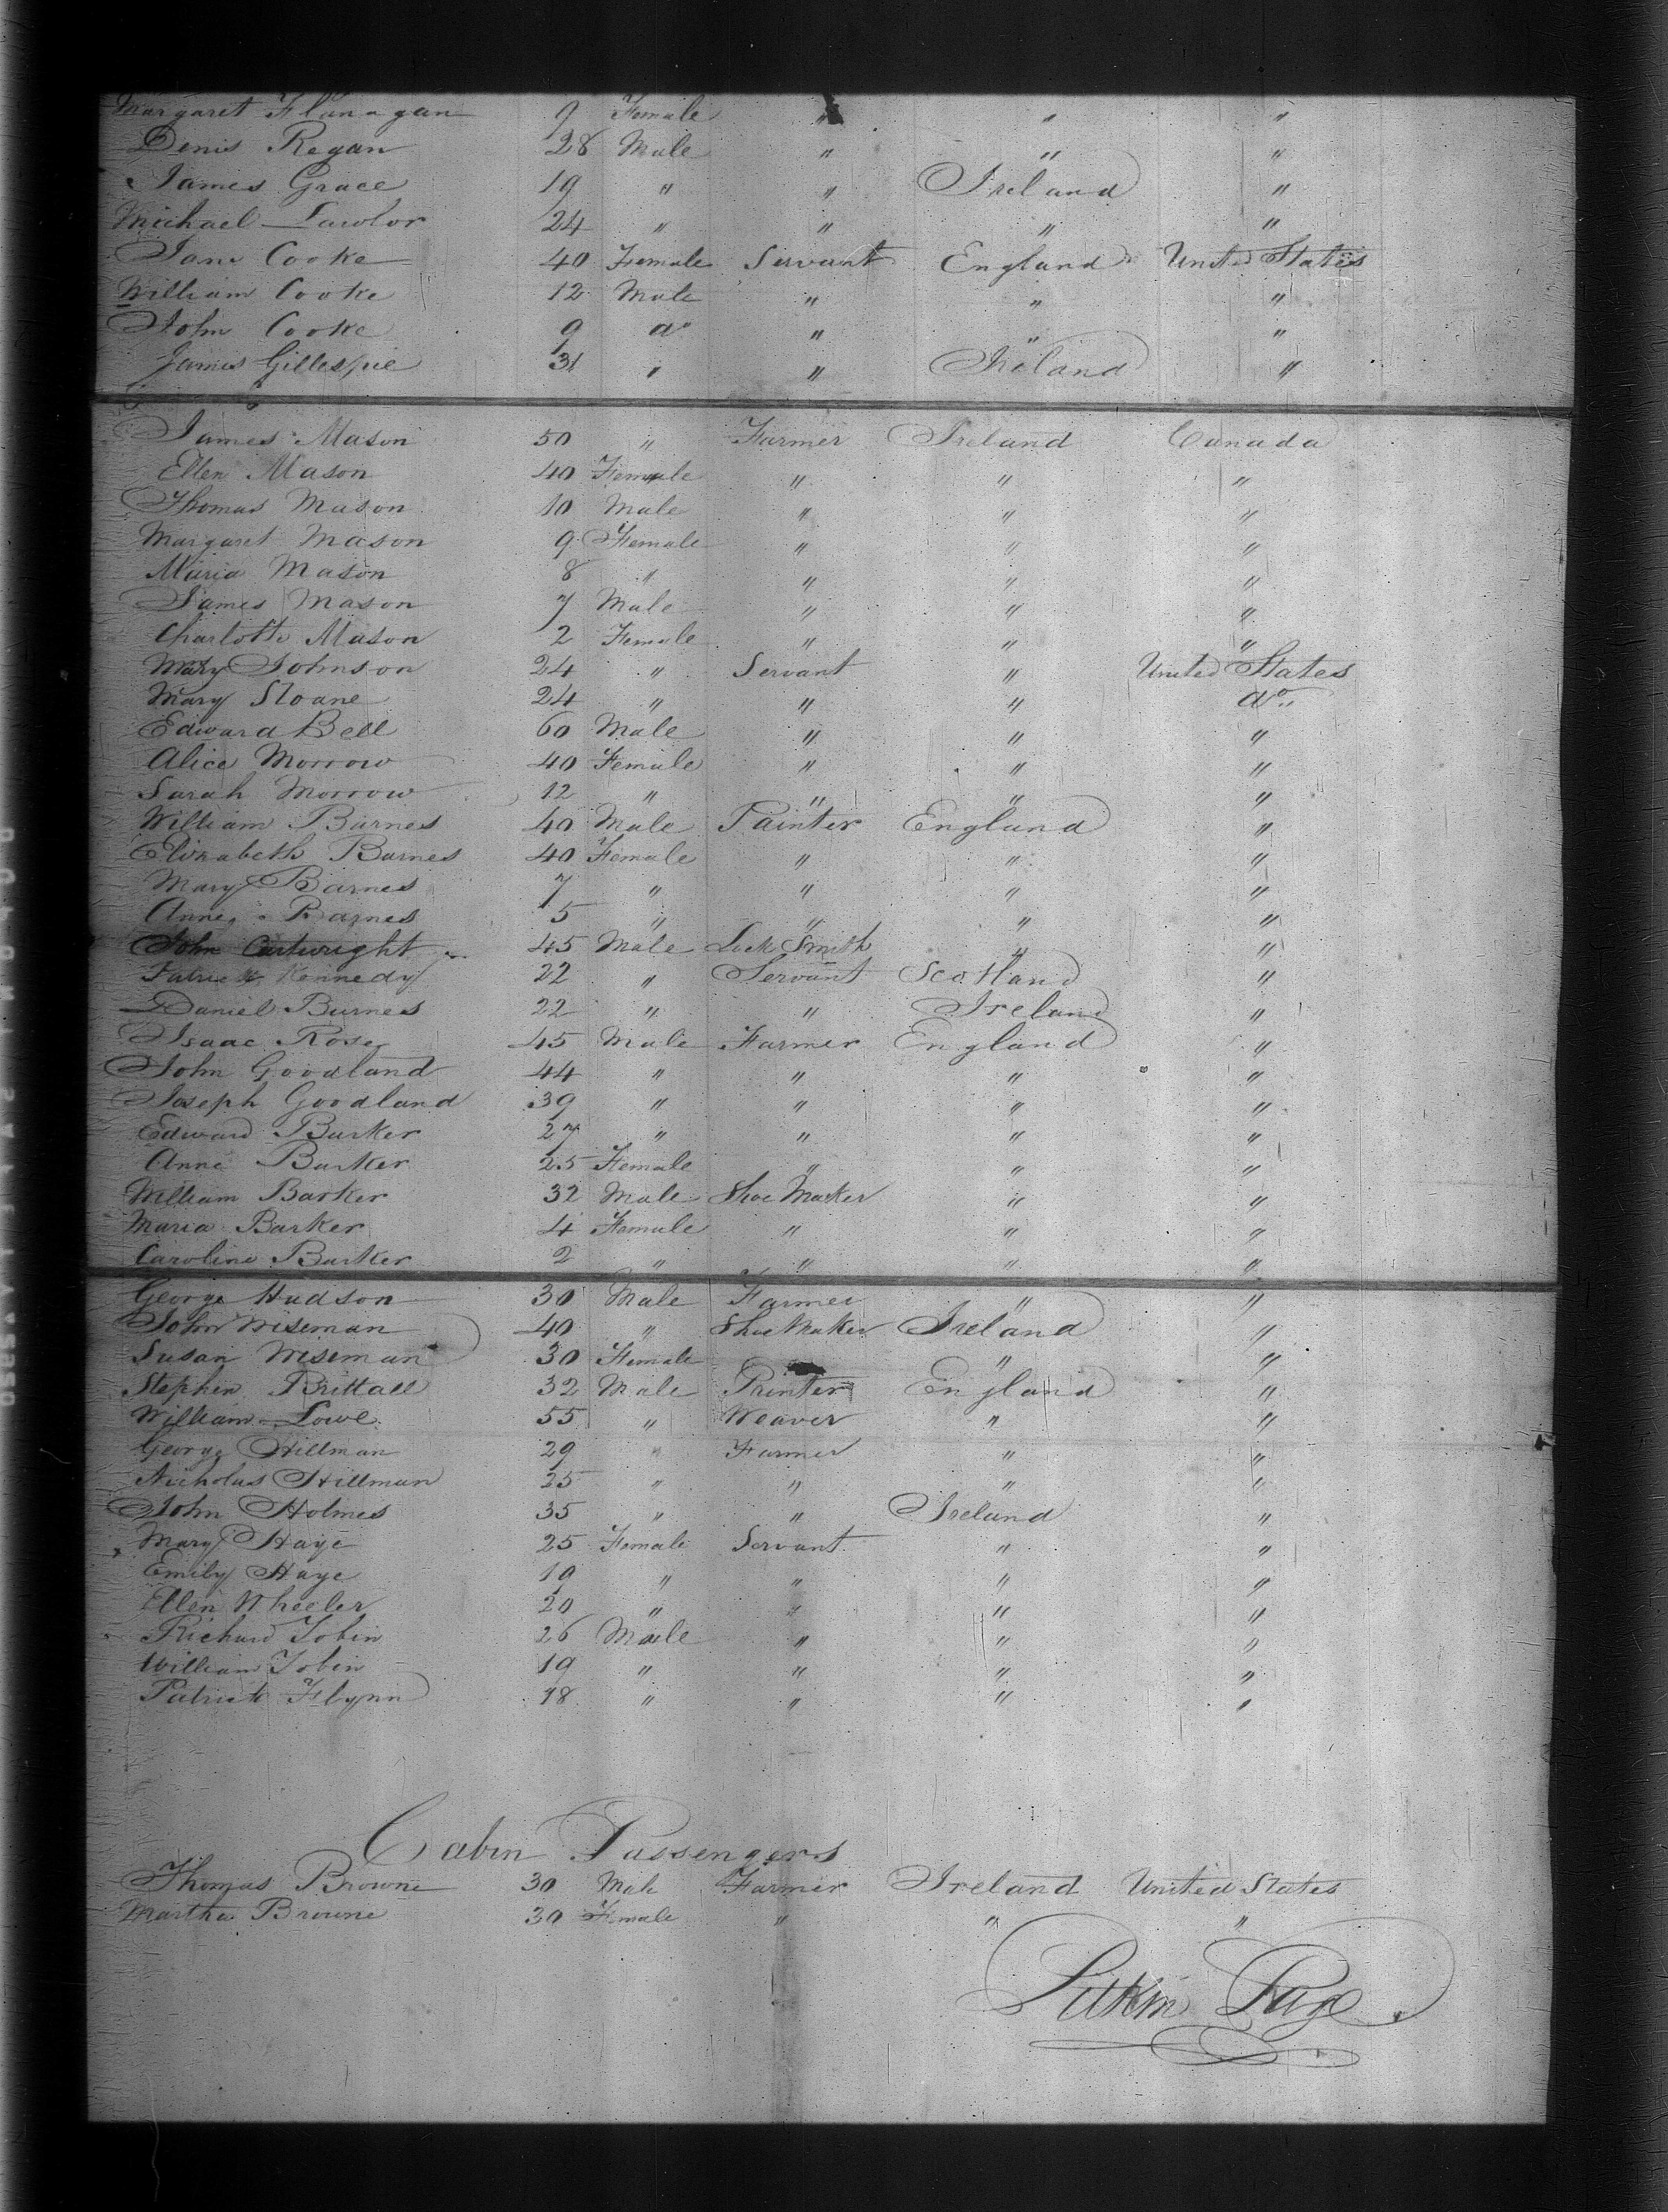 Margaret Flanagan 9 Female " " "
Denis Regan 28 Male " " "
James Grace 19 " " Ireland "
Michael Lawlor 24 " " " "
Jane Cooke 40 Female Servant England United States
William Cooke 12 Male " " "
John Cooke 9 do " " "
James Gillespie 31 " " Ireland "
James Mason 50 " Farmer Ireland Canada
Ellen Mason 40 Female " " "
Thomas Mason 10 Male " " "
Margaret Mason 9 Female " " "
Maria Mason 8 " " " "
James Mason 7 Male " " "
Charlotte Mason 2 Female " " "
Mary Johnson 24 " Servant " United States
Mary Sloane 24 " " " do
Edward Bell 60 Male " " "
Alice Morrow 40 Female " " "
Sarah Morrow 12 " " " "
William Barnes 40 Male Painter England "
Elizabeth Barnes 40 Female " " "
Mary Barnes 7 " " " "
Anne Barnes 5 " " " "
John Cartwright 45 Male Lock Smith " "
Patrick Kennedy 22 " Servant Scotland "
Daniel Burnes 22 " " Ireland "
Isaac Rose 45 Male Farmer England "
John Goodland 44 " " " "
Joseph Goodland 39 " " " "
Edward Barker 27 " " " "
Anne Barker 25 Female " " "
William Barker 32 Male Shoe Maker " "
Maria Barker 4 Female " " "
Caroline Barker 2 " " " "
George Hudson 30 Male Farmer " "
John Wiseman 40 " Shoe Maker Ireland "
Susan Wiseman 30 Female " "
Stephen Brittall 32 Male Printer England "
William Lowe 55 " Weaver " "
George Hillman 29 " Farmer " "
Nicholas Hillman 25 " " " "
John Holmes 35 " " Ireland "
Mary Haye 25 Female Servant " "
Emily Haye 19 " " " "
Ellen Wheeler 20 " " " "
Richard Tobin 26 Male " " "
William Tobin 19 " " " "
Patrick Flynn 18 " " " "
Cabin Passengers
Thomas Browne 30 Male Farmer Ireland United States
Martha Browne 30 Female " " "
Pitkin Page